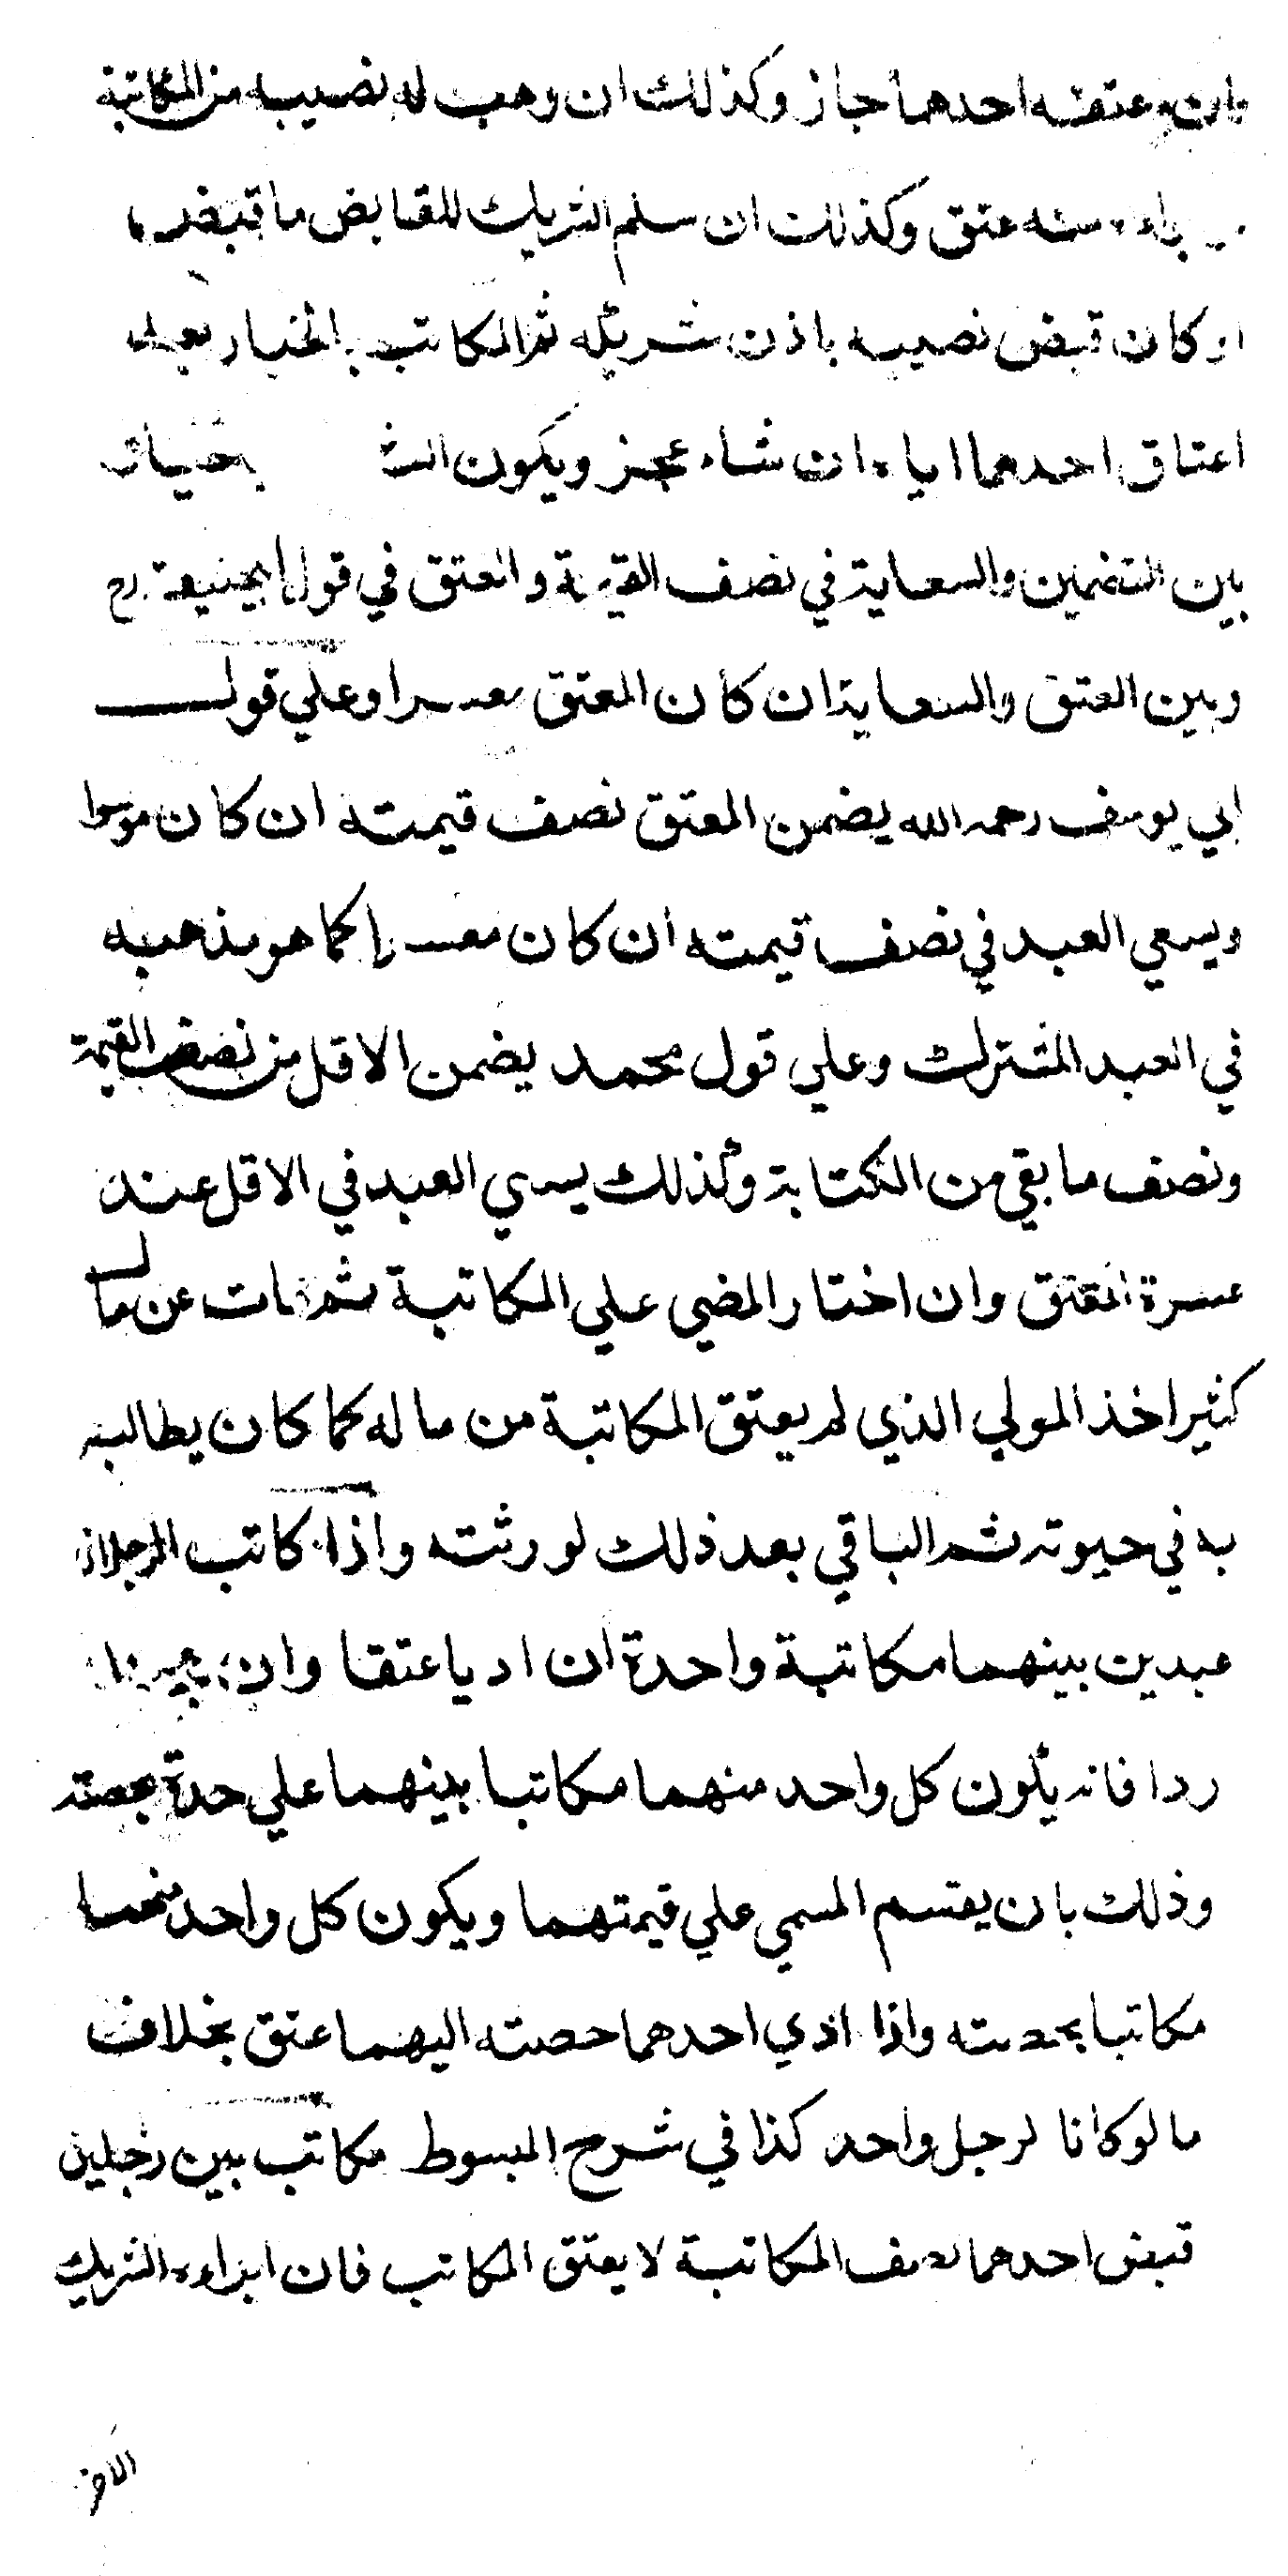 اعتقه احدهما جاز وكذلك ان وهب له نصيبه من المكاتبة
منه عتق وكذلك ان سلم الشريك للقابض ما قبض
او كان قبض نصيبه باذن شريكه ثم المكاتب بالخيار بعد
اعتاق احدهما اياه ان شاء عجز ويكون
بين التضمين والسعاية في نصف القيمة والعتق في قول ابيحنيفة رح
وبين العتق والسعاية ان كان المعتق معسرا وعلي قول
ابي يوسف رحمه الله يضمن المعتق نصف قيمته ان كان موسرا
ويسعي العبد في نصف قيمته ان كان معسرا كما هو مذهبه
في العبد المشترك وعلي قول محمد يضمن الاقل من نصف القيمة
ونصف ما بقي من الكتابة وكذلك يسعي العبد في الاقل عند
عسرة المعتق وان اختار المضي علي المكاتبة ثم مات عن مال
كثير اخذ المولي الذي لم يعتق المكاتبة من ماله كما كان يطالبه
به في حيوته ثم الباقي بعد ذلك لورثته واذا كاتب الرجلان
عبدين بينهما مكاتبة واحدة ان اديا عتقا وان عجزا
ردا فانه يكون كل واحد منهما مكاتبا بينهما علي حدة بحصته
وذلك بان يقسم المسمي علي قيمتهما ويكون كل واحد منهما
مكاتبا بحصته واذا ادي احدهما حصته اليهما عتق بخلاف
ما لو كانا لرجل واحد كذا في شرح المبسوط مكاتب بين رجلين
قبض احدهما نصف المكاتبة لا يعتق المكاتب فان ابراءه الشريك
الاخر